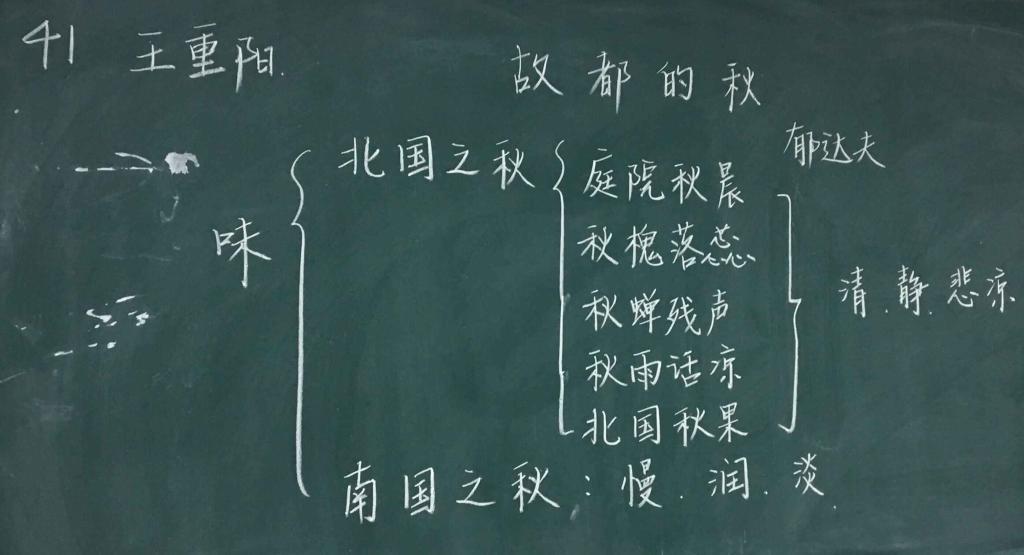 41 王重阳
故都的秋
郁达夫
味
北国之秋
庭院秋晨
秋槐落蕊
秋蝉残声
秋雨话凉
北国秋果
清.静.悲凉
南国之秋：慢.润.淡